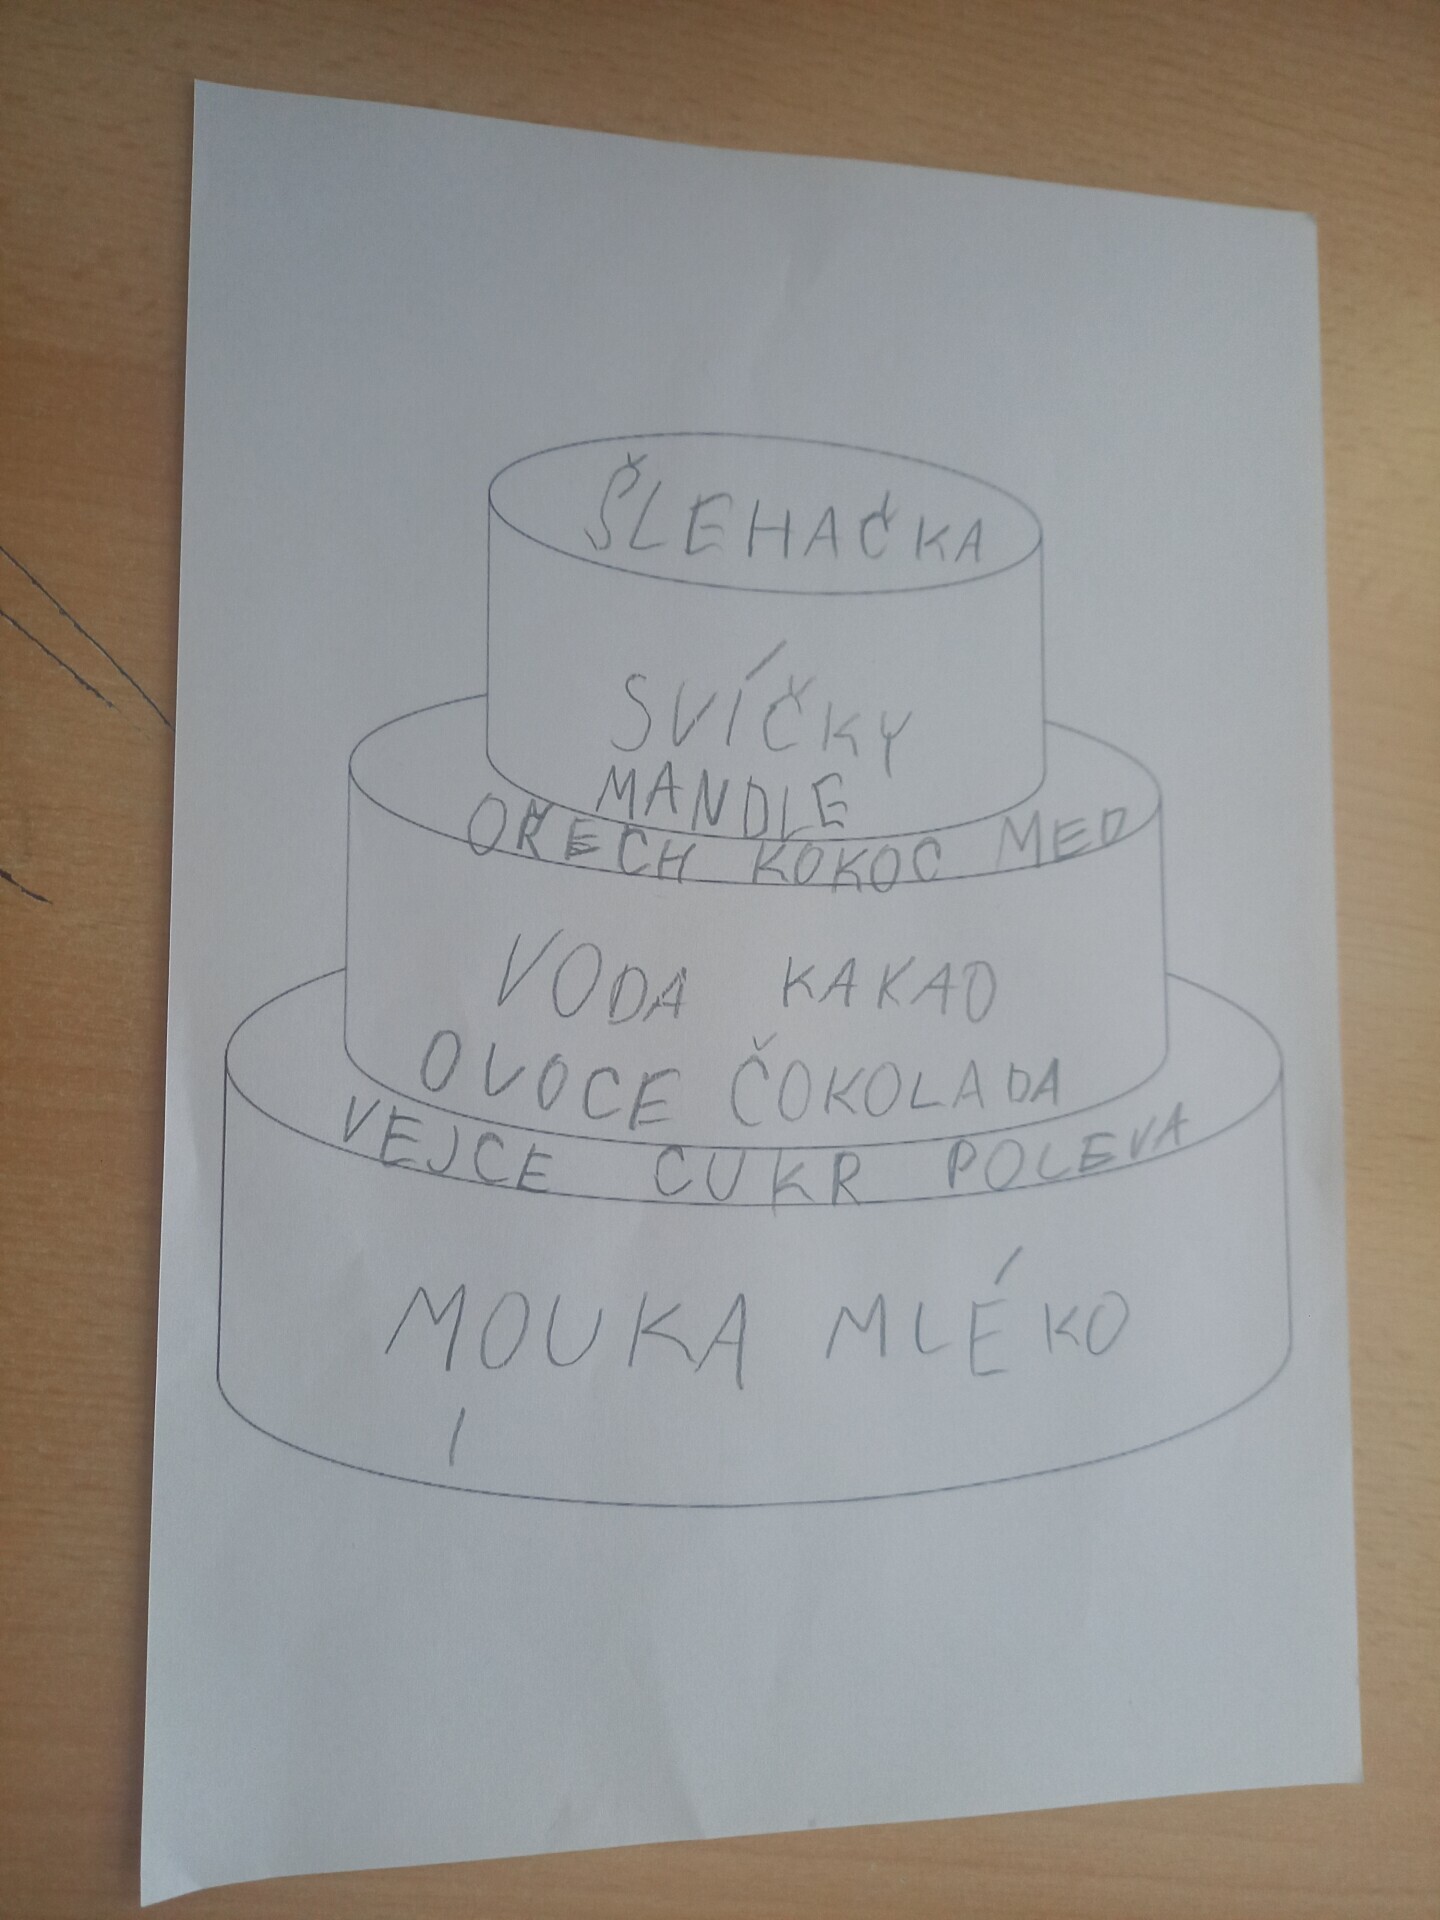 ŠLEHAČKA
SVÍČKY
MANDLE
OŘECH KOKOC MED
VODA KAKAO
OVOCE ČOKOLADA
VEJCE CUKR POLEVA
MOUKA MLÉKO